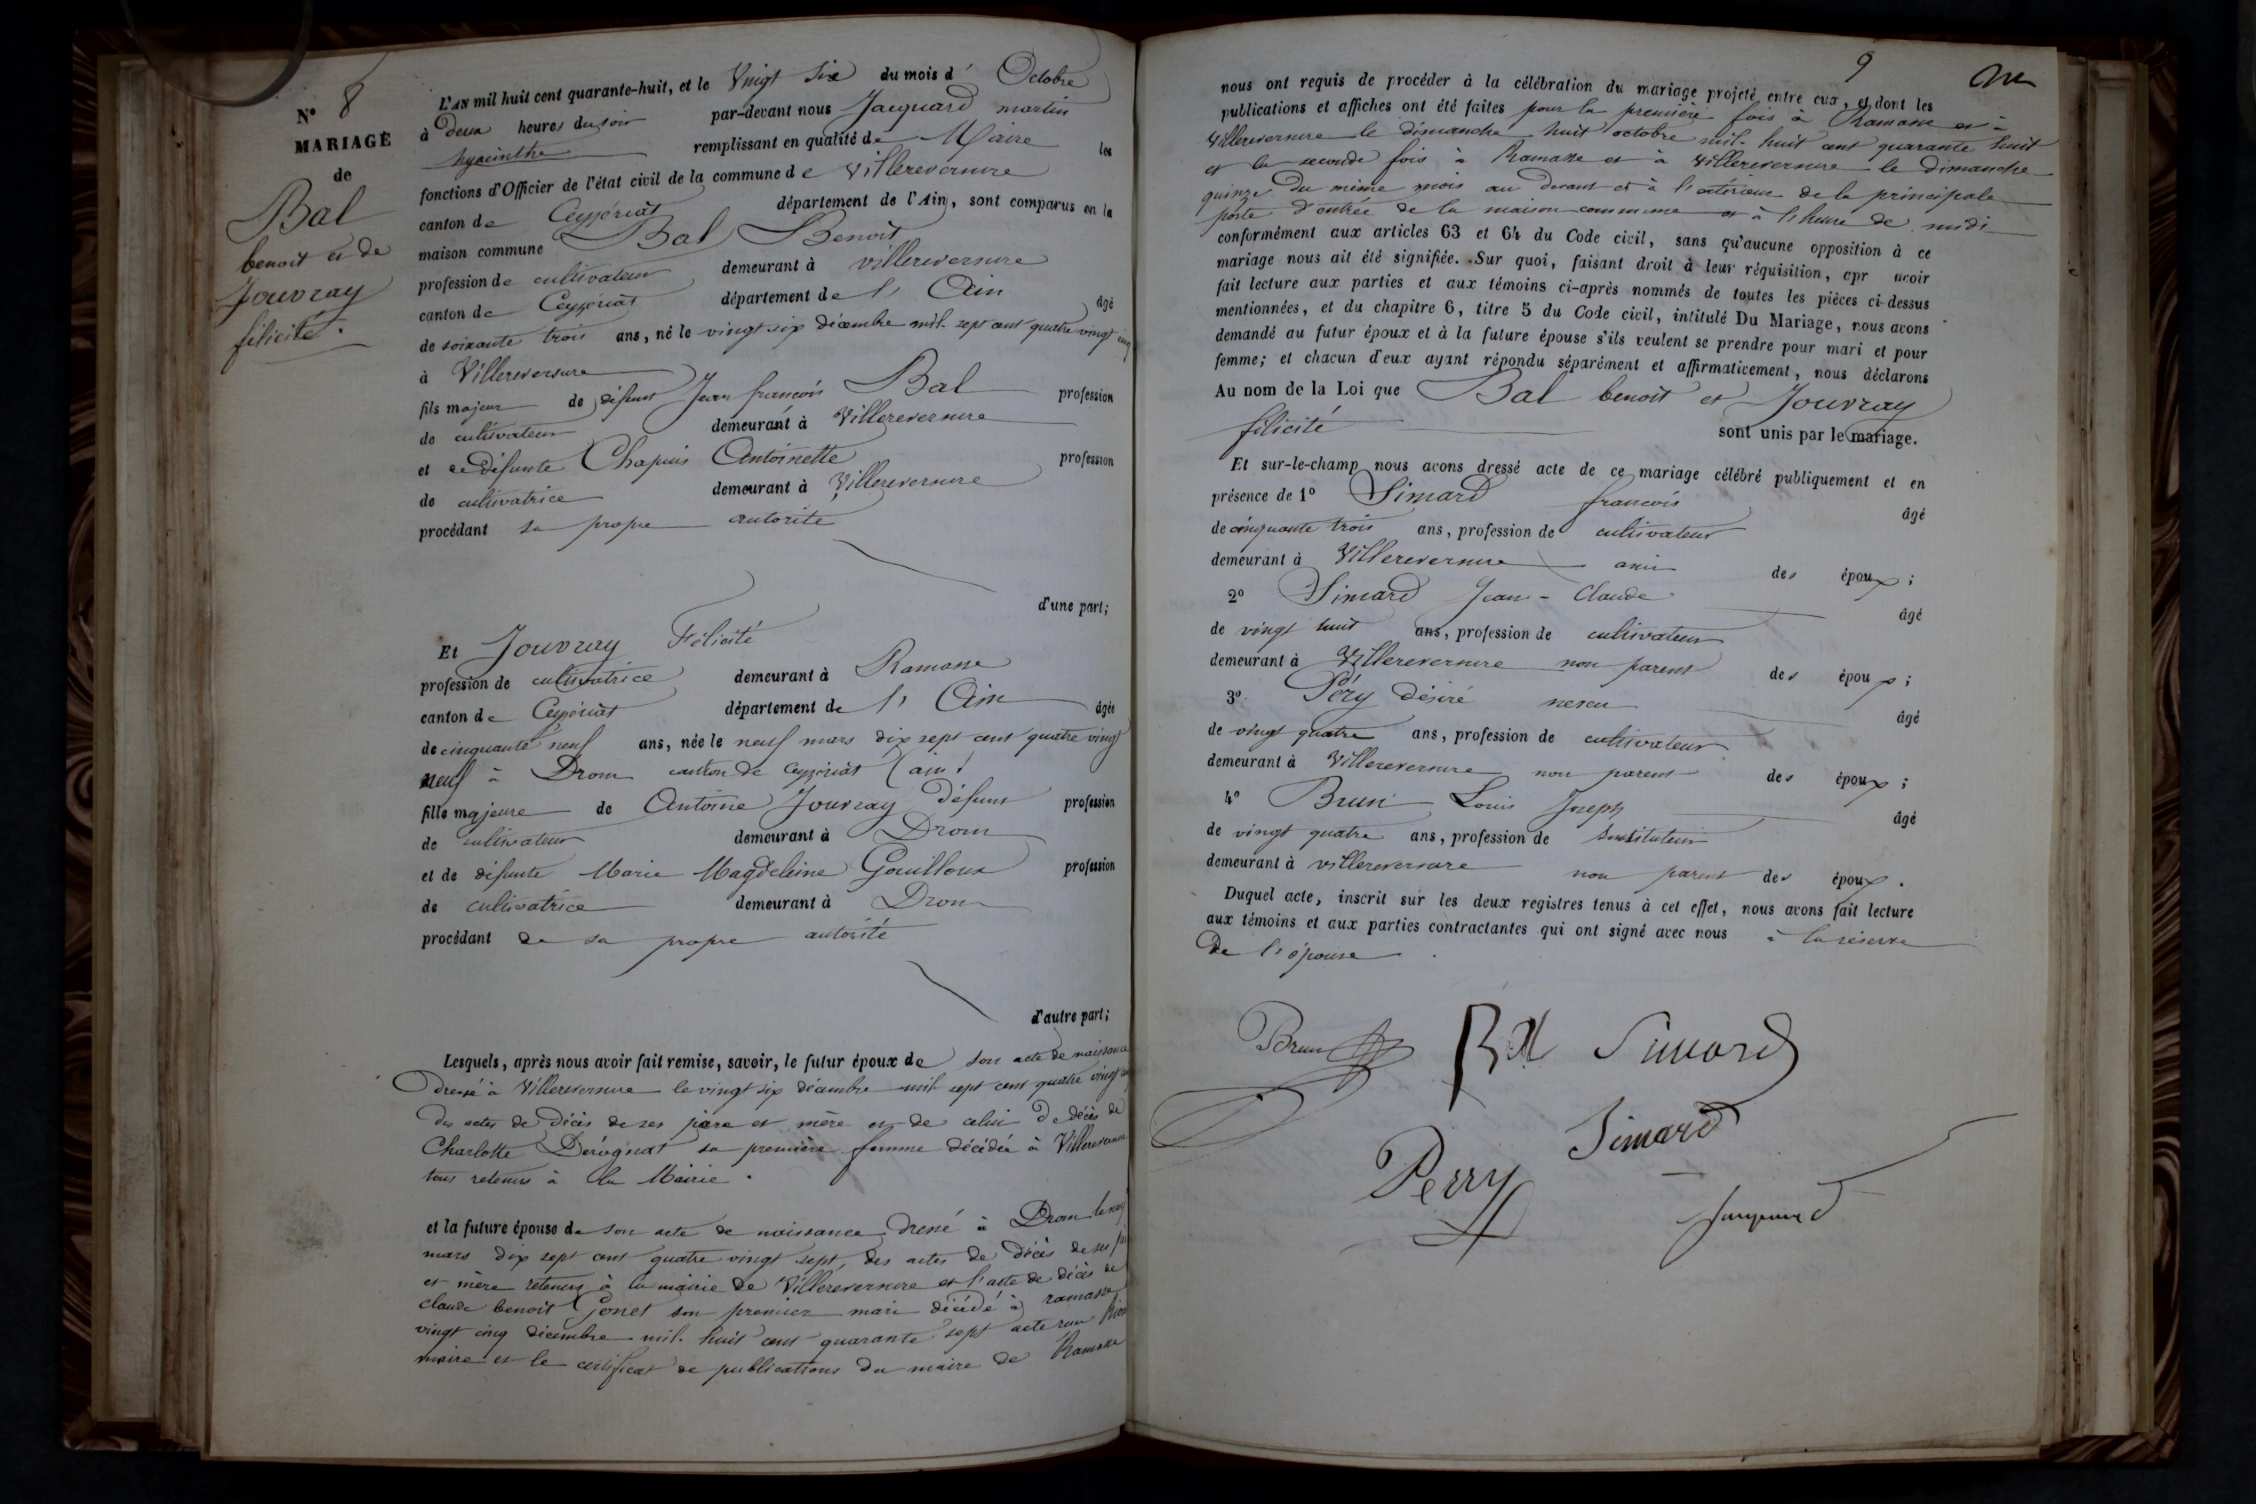 N° 8
MARIAGE
de
Bal
benoit et de
Jouvray
félicité.
L'AN mil huit cent quarante-huit, et le Vingt Six du mois d' Octobre
à deux heures du soir par-devant nous Jacquard martin
hyacinthe remplissant en qualité de Maire les
fonctions d'Officier de l'état civil de la commune de Villereversure
canton de Ceyzériat département de l'Ain, sont comparus en la
maison commune Bal Benoit
profession de cultivateur demeurant à villereversure
canton de Ceyzériat département de l' Ain âgé
de soixante trois ans, né le vingt six décembre mil sept cent quatre vingt cinq
à Villereversure
fils majeur de défunt Jean francois Bal profession
de cultivateur demeurant à Villereversure
et de défunte Chapuis Antoinette profession
de cultivatrice demeurant à Villereversure
procédant sa propre autorité
d'une part;
Et Jouvray Félicité
profession de cultivatrice demeurant à Ramasse
canton de Ceyzériat département de l' Ain âgée
de cinquante neuf ans, née le neuf mars dix sept cent quatre vingt
neuf à Drom canton de Ceyzériat (ain)
fille majeure de Antoine Jouvray défunt profession
de cultivateur demeurant à Drom
et de défunte Marie Magdeleine Gouilloux profession
de cultivatrice demeurant à Drom
procédant de sa propre autorité
d'autre part;
Lesquels, après nous avoir fait remise, savoir, le futur époux de son acte de naissance
dressé à Villereversure le vingt six décembre mil sept cent quatre vingt cinq
des actes de décès de ses père et mère et de celui de décès de
Charlotte Derognat sa première femme décédée à Villereversure
tous retenus à la Mairie.
et la future épouse de son acte de naissance dressé à Drom le neuf
mars dix sept cent quatre vingt sept, des actes de décès de ses
et mère retenus à la mairie de Villereversure et l'acte de décès de
claude benoit Gonet son premier mari décédé à ramasse
vingt cinq décembre mil huit cent quarante sept acte
maire et le certificat de publications du maire de Ramasse
9
nous ont requis de procéder à la célébration du mariage projeté entre eux, et dont les
publications et affiches ont été faites pour la première fois à Ramasse et à
Villereversure le dimanche huit octobre mil huit cent quarante huit
et la seconde fois à Ramasse et à Villereversure le dimanche
quinze du même mois au devant et à l'extérieur de la principale
porte d'entrée de la maison commune et à l'heure de midi
conformément aux articles 63 et 64 du Code civil, sans qu'aucune opposition à ce
mariage nous ait été signifiée. Sur quoi, faisant droit à leur réquisition, apr avoir
fait lecture aux parties et aux témoins ci-après nommés de toutes les pièces ci-dessus
mentionnées, et du chapitre 6, titre 5 du Code civil, intitulé Du Mariage, nous avons
demandé au futur époux et à la future épouse s'ils veulent se prendre pour mari et pour
femme; et chacun d'eux ayant répondu séparément et affirmativement, nous déclarons
Au nom de la Loi que Bal benoit et Jouvray
félicité sont unis par le mariage.
Et sur-le-champ nous avons dressé acte de ce mariage célébré publiquement et en
présence de 1° Simard francois âgé
de cinquante trois ans, profession de cultivateur
demeurant à Villereversure ami des époux;
2° Simard Jean-Claude âgé
de vingt huit ans, profession de cultivateur
demeurant à Villereversure non parent des époux;
3° Péry désiré neveu âgé
de vingt quatre ans, profession de cultivateur
demeurant à Villereversure non parent des époux;
4° Brun Louis Joseph âgé
de vingt quatre ans, profession de Instituteur
demeurant à villereversure non parent des époux.
Duquel acte, inscrit sur les deux registres tenus à cet effet, nous avons fait lecture
aux témoins et aux parties contractantes qui ont signé avec nous à la réserve
de l'épouse
Brun Bal Simard
Simard
Perry
Jacquard